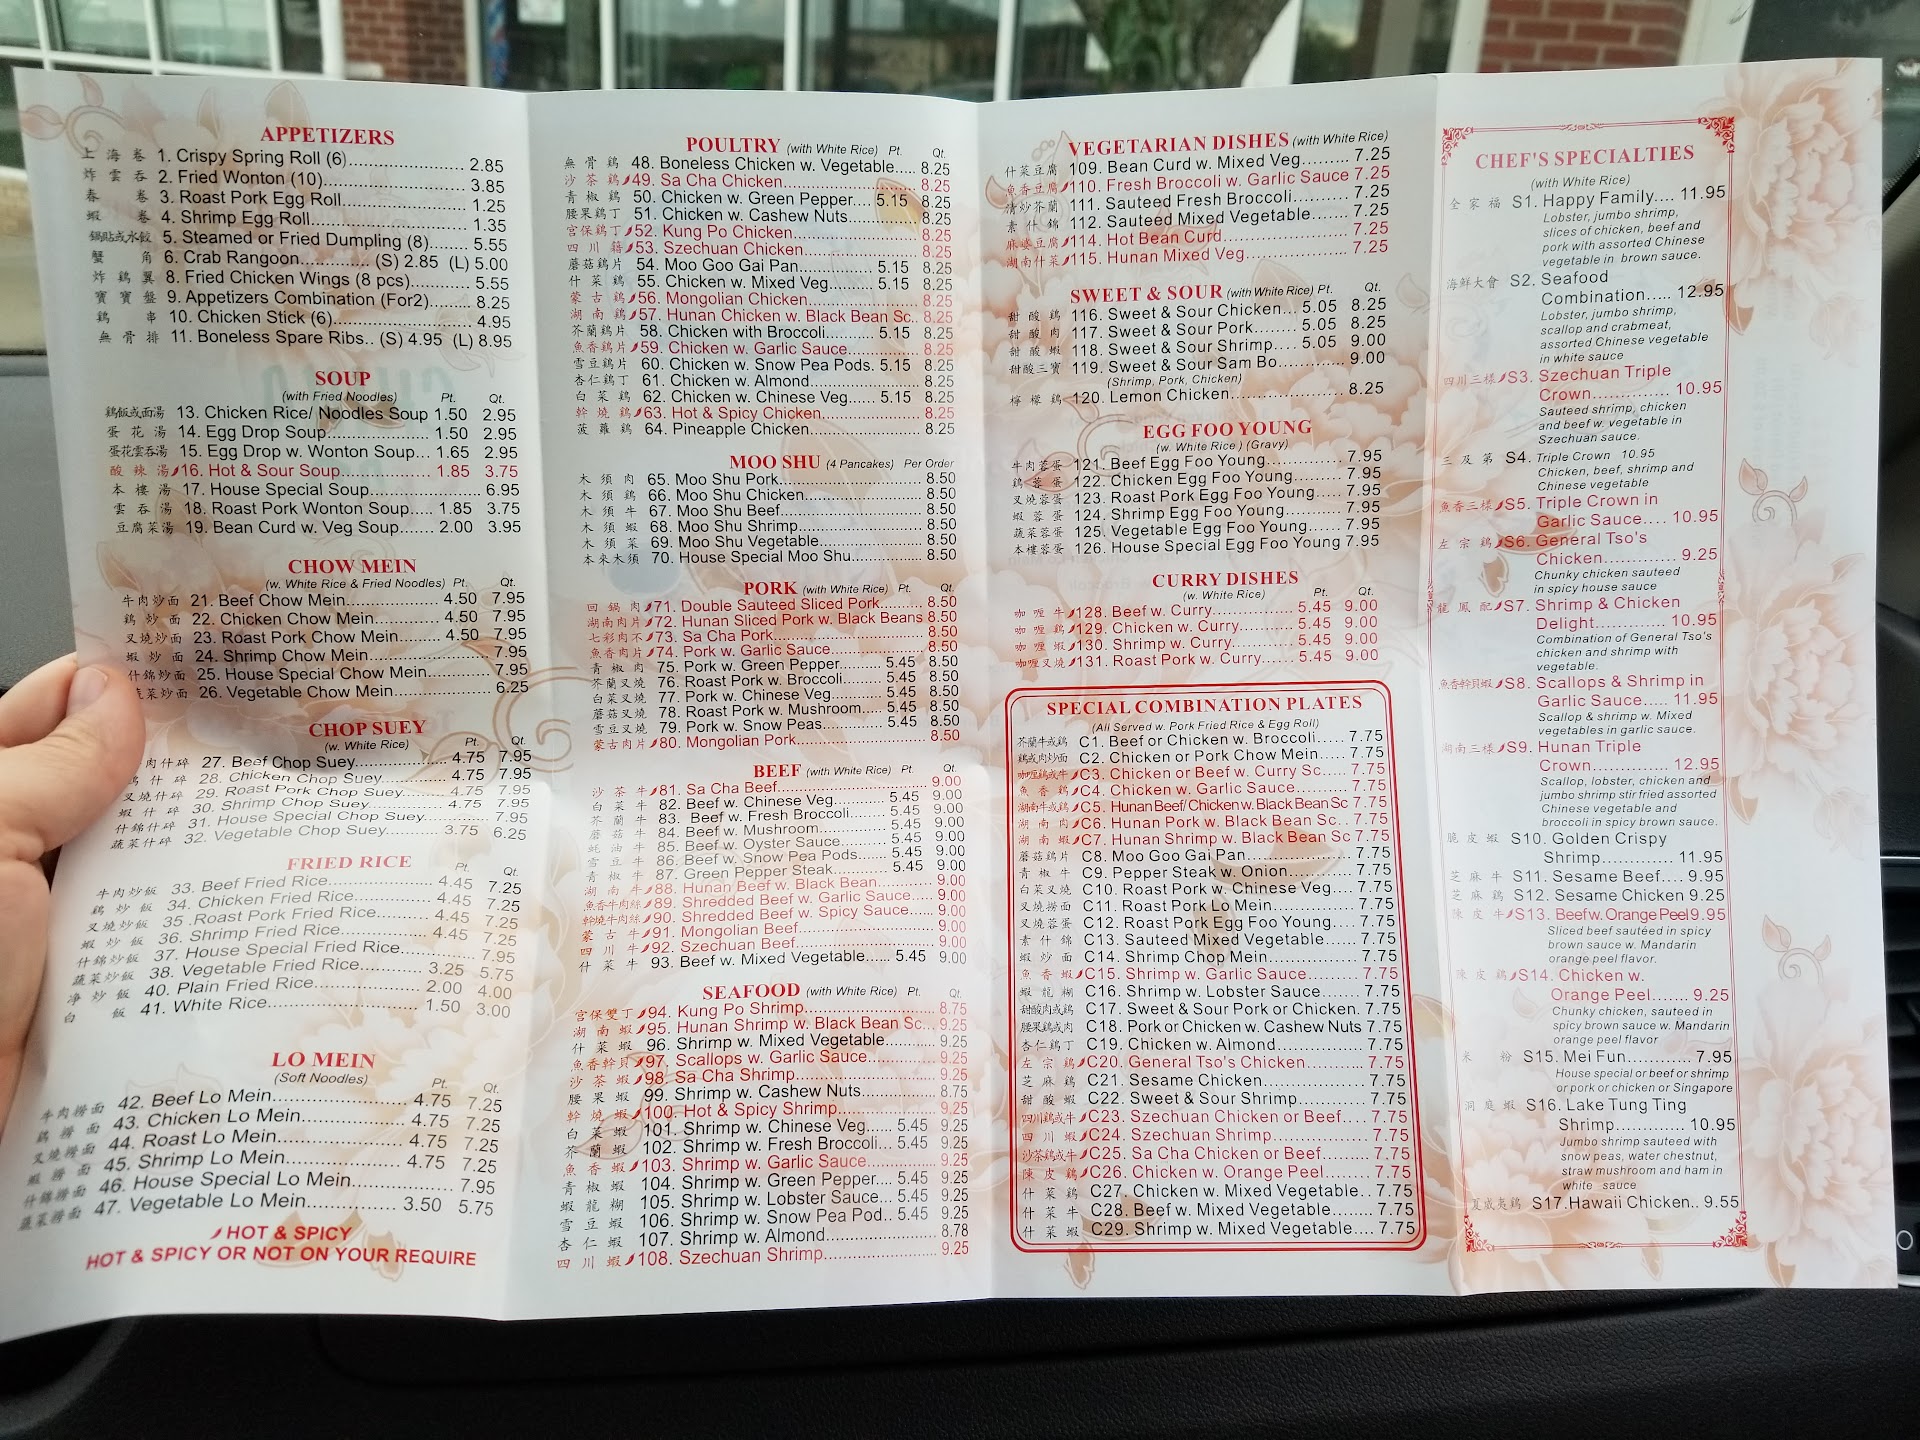 APPETIZERS
上海卷 1. Crispy Spring Roll (6)..................... 2.85
炸雲吞 2. Fried Wonton (10)..................... 3.85
春卷 3. Roast Pork Egg Roll..................... 1.25
蝦卷 4. Shrimp Egg Roll..................... 1.35
鍋貼或水餃 5. Steamed or Fried Dumpling (8)....... 5.55
蟹角 6. Crab Rangoon.............. (S) 2.85 (L) 5.00
炸鷄翼 8. Fried Chicken Wings (8 pcs)........... 5.55
寶寶盤 9. Appetizers Combination (For2)........ 8.25
鷄串 10. Chicken Stick (6)..................... 4.95
無骨排 11. Boneless Spare Ribs.. (S) 4.95 (L) 8.95
SOUP
(with Fried Noodles) Pt. Qt.
鷄飯或面湯 13. Chicken Rice/ Noodles Soup 1.50 2.95
蛋花湯 14. Egg Drop Soup................... 1.50 2.95
蛋花雲吞湯 15. Egg Drop w. Wonton Soup... 1.65 2.95
酸辣湯 16. Hot & Sour Soup................. 1.85 3.75
本樓湯 17. House Special Soup..................... 6.95
雲吞湯 18. Roast Pork Wonton Soup..... 1.85 3.75
豆腐菜湯 19. Bean Curd w. Veg Soup....... 2.00 3.95
CHOW MEIN
(w. White Rice & Fried Noodles) Pt. Qt.
牛肉炒面 21. Beef Chow Mein................. 4.50 7.95
鷄炒面 22. Chicken Chow Mein............. 4.50 7.95
叉燒炒面 23. Roast Pork Chow Mein......... 4.50 7.95
蝦炒面 24. Shrimp Chow Mein..................... 7.95
什錦炒面 25. House Special Chow Mein............ 7.95
蔬菜炒面 26. Vegetable Chow Mein................. 6.25
CHOP SUEY
(w. White Rice) Pt. Qt.
肉什碎 27. Beef Chop Suey................. 4.75 7.95
鷄什碎 28. Chicken Chop Suey............. 4.75 7.95
叉燒什碎 29. Roast Pork Chop Suey......... 4.75 7.95
蝦什碎 30. Shrimp Chop Suey............. 4.75 7.95
什錦什碎 31. House Special Chop Suey............ 7.95
蔬菜什碎 32. Vegetable Chop Suey........... 3.75 6.25
FRIED RICE
Pt. Qt.
牛肉炒飯 33. Beef Fried Rice................. 4.45 7.25
鷄炒飯 34. Chicken Fried Rice............. 4.45 7.25
叉燒炒飯 35. Roast Pork Fried Rice......... 4.45 7.25
蝦炒飯 36. Shrimp Fried Rice............. 4.45 7.25
什錦炒飯 37. House Special Fried Rice............ 7.95
蔬菜炒飯 38. Vegetable Fried Rice........... 3.25 5.75
净炒飯 40. Plain Fried Rice................. 2.00 4.00
白飯 41. White Rice..................... 1.50 3.00
LO MEIN
(Soft Noodles) Pt. Qt.
牛肉撈面 42. Beef Lo Mein................. 4.75 7.25
鷄撈面 43. Chicken Lo Mein............. 4.75 7.25
叉燒撈面 44. Roast Lo Mein................. 4.75 7.25
蝦撈面 45. Shrimp Lo Mein................. 4.75 7.25
什錦撈面 46. House Special Lo Mein............ 7.95
蔬菜撈面 47. Vegetable Lo Mein............. 3.50 5.75
HOT & SPICY
HOT & SPICY OR NOT ON YOUR REQUIRE
POULTRY (with White Rice) Pt. Qt.
無骨鷄 48. Boneless Chicken w. Vegetable.... 8.25
沙茶鷄 49. Sa Cha Chicken..................... 8.25
青椒鷄 50. Chicken w. Green Pepper.... 5.15 8.25
腰果鷄丁 51. Chicken w. Cashew Nuts............ 8.25
宮保鷄丁 52. Kung Po Chicken..................... 8.25
四川鷄 53. Szechuan Chicken..................... 8.25
蘑菇鷄片 54. Moo Goo Gai Pan............. 5.15 8.25
什菜鷄 55. Chicken w. Mixed Veg......... 5.15 8.25
蒙古鷄 56. Mongolian Chicken..................... 8.25
湖南鷄 57. Hunan Chicken w. Black Bean Sc.. 8.25
芥蘭鷄片 58. Chicken with Broccoli......... 5.15 8.25
魚香鷄片 59. Chicken w. Garlic Sauce............ 8.25
雪豆鷄片 60. Chicken w. Snow Pea Pods. 5.15 8.25
杏仁鷄丁 61. Chicken w. Almond..................... 8.25
白菜鷄 62. Chicken w. Chinese Veg....... 5.15 8.25
幹燒鷄 63. Hot & Spicy Chicken................. 8.25
菠蘿鷄 64. Pineapple Chicken..................... 8.25
MOO SHU (4 Pancakes) Per Order
木須肉 65. Moo Shu Pork..................... 8.50
木須鷄 66. Moo Shu Chicken..................... 8.50
木須牛 67. Moo Shu Beef..................... 8.50
木須蝦 68. Moo Shu Shrimp..................... 8.50
木須菜 69. Moo Shu Vegetable..................... 8.50
本來木須 70. House Special Moo Shu............ 8.50
PORK (with White Rice) Pt. Qt.
回鍋肉 71. Double Sauteed Sliced Pork....... 8.50
湖南肉片 72. Hunan Sliced Pork w. Black Beans 8.50
七彩肉不 73. Sa Cha Pork..................... 8.50
魚香肉片 74. Pork w. Garlic Sauce................. 8.50
青椒肉 75. Pork w. Green Pepper......... 5.45 8.50
芥蘭叉燒 76. Roast Pork w. Broccoli....... 5.45 8.50
白菜叉燒 77. Pork w. Chinese Veg........... 5.45 8.50
蘑菇叉燒 78. Roast Pork w. Mushroom..... 5.45 8.50
雪豆叉燒 79. Pork w. Snow Peas............. 5.45 8.50
蒙古肉片 80. Mongolian Pork..................... 8.50
BEEF (with White Rice) Pt. Qt.
沙茶牛 81. Sa Cha Beef..................... 9.00
白菜牛 82. Beef w. Chinese Veg........... 5.45 9.00
芥蘭牛 83. Beef w. Fresh Broccoli......... 5.45 9.00
蘑菇牛 84. Beef w. Mushroom............. 5.45 9.00
蚝油牛 85. Beef w. Oyster Sauce......... 5.45 9.00
雪豆牛 86. Beef w. Snow Pea Pods....... 5.45 9.00
青椒牛 87. Green Pepper Steak........... 5.45 9.00
湖南牛 88. Hunan Beef w. Black Bean............ 9.00
魚香牛肉絲 89. Shredded Beef w. Garlic Sauce..... 9.00
幹燒牛肉絲 90. Shredded Beef w. Spicy Sauce...... 9.00
蒙古牛 91. Mongolian Beef..................... 9.00
四川牛 92. Szechuan Beef..................... 9.00
什菜牛 93. Beef w. Mixed Vegetable..... 5.45 9.00
SEAFOOD (with White Rice) Pt. Qt.
宮保雙丁 94. Kung Po Shrimp..................... 8.75
湖南蝦 95. Hunan Shrimp w. Black Bean Sc... 9.25
什菜蝦 96. Shrimp w. Mixed Vegetable............ 9.25
魚香幹貝 97. Scallops w. Garlic Sauce............ 9.25
沙茶蝦 98. Sa Cha Shrimp..................... 9.25
腰果蝦 99. Shrimp w. Cashew Nuts................. 8.75
幹燒蝦 100. Hot & Spicy Shrimp..................... 9.25
白菜蝦 101. Shrimp w. Chinese Veg...... 5.45 9.25
芥蘭蝦 102. Shrimp w. Fresh Broccoli... 5.45 9.25
魚香蝦 103. Shrimp w. Garlic Sauce............ 9.25
青椒蝦 104. Shrimp w. Green Pepper.... 5.45 9.25
蝦龍糊 105. Shrimp w. Lobster Sauce... 5.45 9.25
雪豆蝦 106. Shrimp w. Snow Pea Pod.. 5.45 9.25
杏仁蝦 107. Shrimp w. Almond..................... 8.78
四川蝦 108. Szechuan Shrimp..................... 9.25
VEGETARIAN DISHES (with White Rice)
什菜豆腐 109. Bean Curd w. Mixed Veg......... 7.25
魚香豆腐 110. Fresh Broccoli w. Garlic Sauce 7.25
清炒芥蘭 111. Sauteed Fresh Broccoli........... 7.25
素什錦 112. Sauteed Mixed Vegetable........ 7.25
麻婆豆腐 114. Hot Bean Curd..................... 7.25
湖南什菜 115. Hunan Mixed Veg..................... 7.25
SWEET & SOUR (with White Rice) Pt. Qt.
甜酸鷄 116. Sweet & Sour Chicken... 5.05 8.25
甜酸肉 117. Sweet & Sour Pork........ 5.05 8.25
甜酸蝦 118. Sweet & Sour Shrimp..... 5.05 9.00
甜酸三寶 119. Sweet & Sour Sam Bo............ 9.00
(Shrimp, Pork, Chicken)
檸檬鷄 120. Lemon Chicken..................... 8.25
EGG FOO YOUNG
(w. White Rice ) (Gravy)
牛肉蓉蛋 121. Beef Egg Foo Young.............. 7.95
鷄蓉蛋 122. Chicken Egg Foo Young......... 7.95
叉燒蓉蛋 123. Roast Pork Egg Foo Young..... 7.95
蝦蓉蛋 124. Shrimp Egg Foo Young........... 7.95
蔬菜蓉蛋 125. Vegetable Egg Foo Young...... 7.95
本樓蓉蛋 126. House Special Egg Foo Young 7.95
CURRY DISHES
(w. White Rice) Pt. Qt.
咖喱牛 128. Beef w. Curry.............. 5.45 9.00
咖喱鷄 129. Chicken w. Curry......... 5.45 9.00
咖喱蝦 130. Shrimp w. Curry........... 5.45 9.00
咖喱叉燒 131. Roast Pork w. Curry..... 5.45 9.00
SPECIAL COMBINATION PLATES
(All Served w. Pork Fried Rice & Egg Roll)
芥蘭牛或鷄 C1. Beef or Chicken w. Broccoli..... 7.75
鷄或肉炒面 C2. Chicken or Pork Chow Mein..... 7.75
咖喱鷄或牛 C3. Chicken or Beef w. Curry Sc..... 7.75
魚香鷄 C4. Chicken w. Garlic Sauce......... 7.75
湖南牛或鷄 C5. Hunan Beef/ Chicken w. Black Bean Sc 7.75
湖南肉 C6. Hunan Pork w. Black Bean Sc.. 7.75
湖南蝦 C7. Hunan Shrimp w. Black Bean Sc 7.75
蘑菇鷄片 C8. Moo Goo Gai Pan................. 7.75
青椒牛 C9. Pepper Steak w. Onion........... 7.75
白菜叉燒 C10. Roast Pork w. Chinese Veg.... 7.75
叉燒撈面 C11. Roast Pork Lo Mein............. 7.75
叉燒蓉蛋 C12. Roast Pork Egg Foo Young.... 7.75
素什錦 C13. Sauteed Mixed Vegetable...... 7.75
蝦炒面 C14. Shrimp Chop Mein................. 7.75
魚香蝦 C15. Shrimp w. Garlic Sauce......... 7.75
蝦龍糊 C16. Shrimp w. Lobster Sauce....... 7.75
甜酸肉或鷄 C17. Sweet & Sour Pork or Chicken. 7.75
腰果鷄或肉 C18. Pork or Chicken w. Cashew Nuts 7.75
杏仁鷄丁 C19. Chicken w. Almond............. 7.75
左宗鷄 C20. General Tso's Chicken........... 7.75
芝麻鷄 C21. Sesame Chicken................. 7.75
甜酸蝦 C22. Sweet & Sour Shrimp............. 7.75
四川鷄或牛 C23. Szechuan Chicken or Beef..... 7.75
四川蝦 C24. Szechuan Shrimp................. 7.75
沙茶鷄或牛 C25. Sa Cha Chicken or Beef......... 7.75
陳皮鷄 C26. Chicken w. Orange Peel......... 7.75
什菜鷄 C27. Chicken w. Mixed Vegetable.. 7.75
什菜牛 C28. Beef w. Mixed Vegetable........ 7.75
什菜蝦 C29. Shrimp w. Mixed Vegetable.... 7.75
CHEF'S SPECIALTIES
(with White Rice)
全家福 S1. Happy Family.... 11.95
Lobster, jumbo shrimp,
slices of chicken, beef and
pork with assorted Chinese
vegetable in brown sauce.
海鮮大會 S2. Seafood
Combination..... 12.95
Lobster, jumbo shrimp,
scallop and crabmeat,
assorted Chinese vegetable
in white sauce
四川三樣 S3. Szechuan Triple
Crown............ 10.95
Sauteed shrimp, chicken
and beef w. vegetable in
Szechuan sauce.
三及第 S4. Triple Crown 10.95
Chicken, beef, shrimp and
Chinese vegetable
魚香三樣 S5. Triple Crown in
Garlic Sauce.... 10.95
左宗鷄 S6. General Tso's
Chicken............ 9.25
Chunky chicken sauteed
in spicy house sauce
龍鳳配 S7. Shrimp & Chicken
Delight............ 10.95
Combination of General Tso's
chicken and shrimp with
vegetable.
魚香幹貝蝦 S8. Scallops & Shrimp in
Garlic Sauce..... 11.95
Scallop & shrimp w. Mixed
vegetables in garlic sauce.
湖南三樣 S9. Hunan Triple
Crown............ 12.95
Scallop, lobster, chicken and
jumbo shrimp stir fried assorted
Chinese vegetable and
broccoli in spicy brown sauce.
脆皮蝦 S10. Golden Crispy
Shrimp............ 11.95
芝麻牛 S11. Sesame Beef.... 9.95
芝麻鷄 S12. Sesame Chicken 9.25
陳皮牛 S13. Beef w. Orange Peel 9.95
Sliced beef sautéed in spicy
brown sauce w. Mandarin
orange peel flavor.
陳皮鷄 S14. Chicken w.
Orange Peel....... 9.25
Chunky chicken, sauteed in
spicy brown sauce w. Mandarin
orange peel flavor
米粉 S15. Mei Fun............ 7.95
House special or beef or shrimp
or pork or chicken or Singapore
洞庭蝦 S16. Lake Tung Ting
Shrimp............ 10.95
Jumbo shrimp sauteed with
snow peas, water chestnut,
straw mushroom and ham in
white sauce
夏威夷鷄 S17. Hawaii Chicken.. 9.55